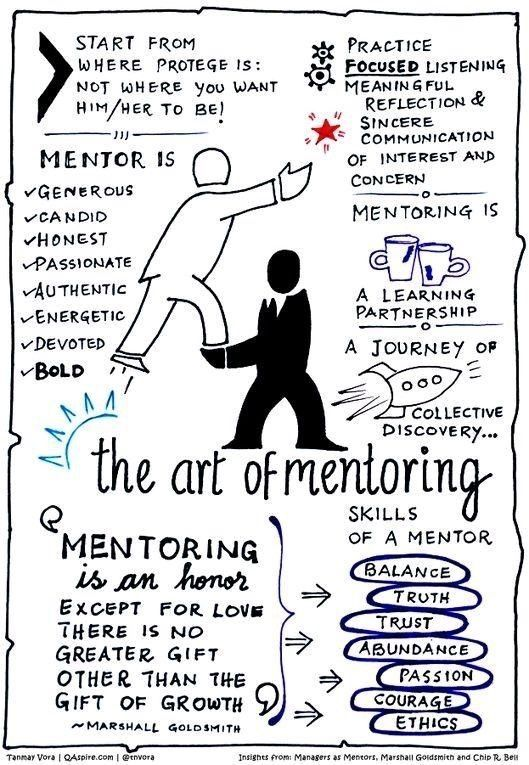 START FROM
WHERE PROTEGE IS:
NOT WHERE YOU WANT
HIM/HER TO BE!
PRACTICE
FOCUSED LISTENING
MEANINGFUL
REFLECTION &
SINCERE
COMMUNICATION
OF INTEREST AND
CONCERN
MENTOR IS
✓GENEROUS
✓CANDID
✓HONEST
✓PASSIONATE
✓AUTHENTIC
✓ENERGETIC
✓DEVOTED
✓BOLD
MENTORING IS
A LEARNING
PARTNERSHIP
A JOURNEY OF
COLLECTIVE
DISCOVERY...
the art of mentoring
MENTORING
is an honor
EXCEPT FOR LOVE
THERE IS NO
GREATER GIFT
OTHER THAN THE
GIFT OF GROWTH
~MARSHALL GOLDSMITH
SKILLS
OF A MENTOR
BALANCE
TRUTH
TRUST
ABUNDANCE
PASSION
COURAGE
ETHICS
Tanmay Vora | QAspire.com | @tnvora
Insights from: Managers as Mentors, Marshall Goldsmith and Chip R. Bell